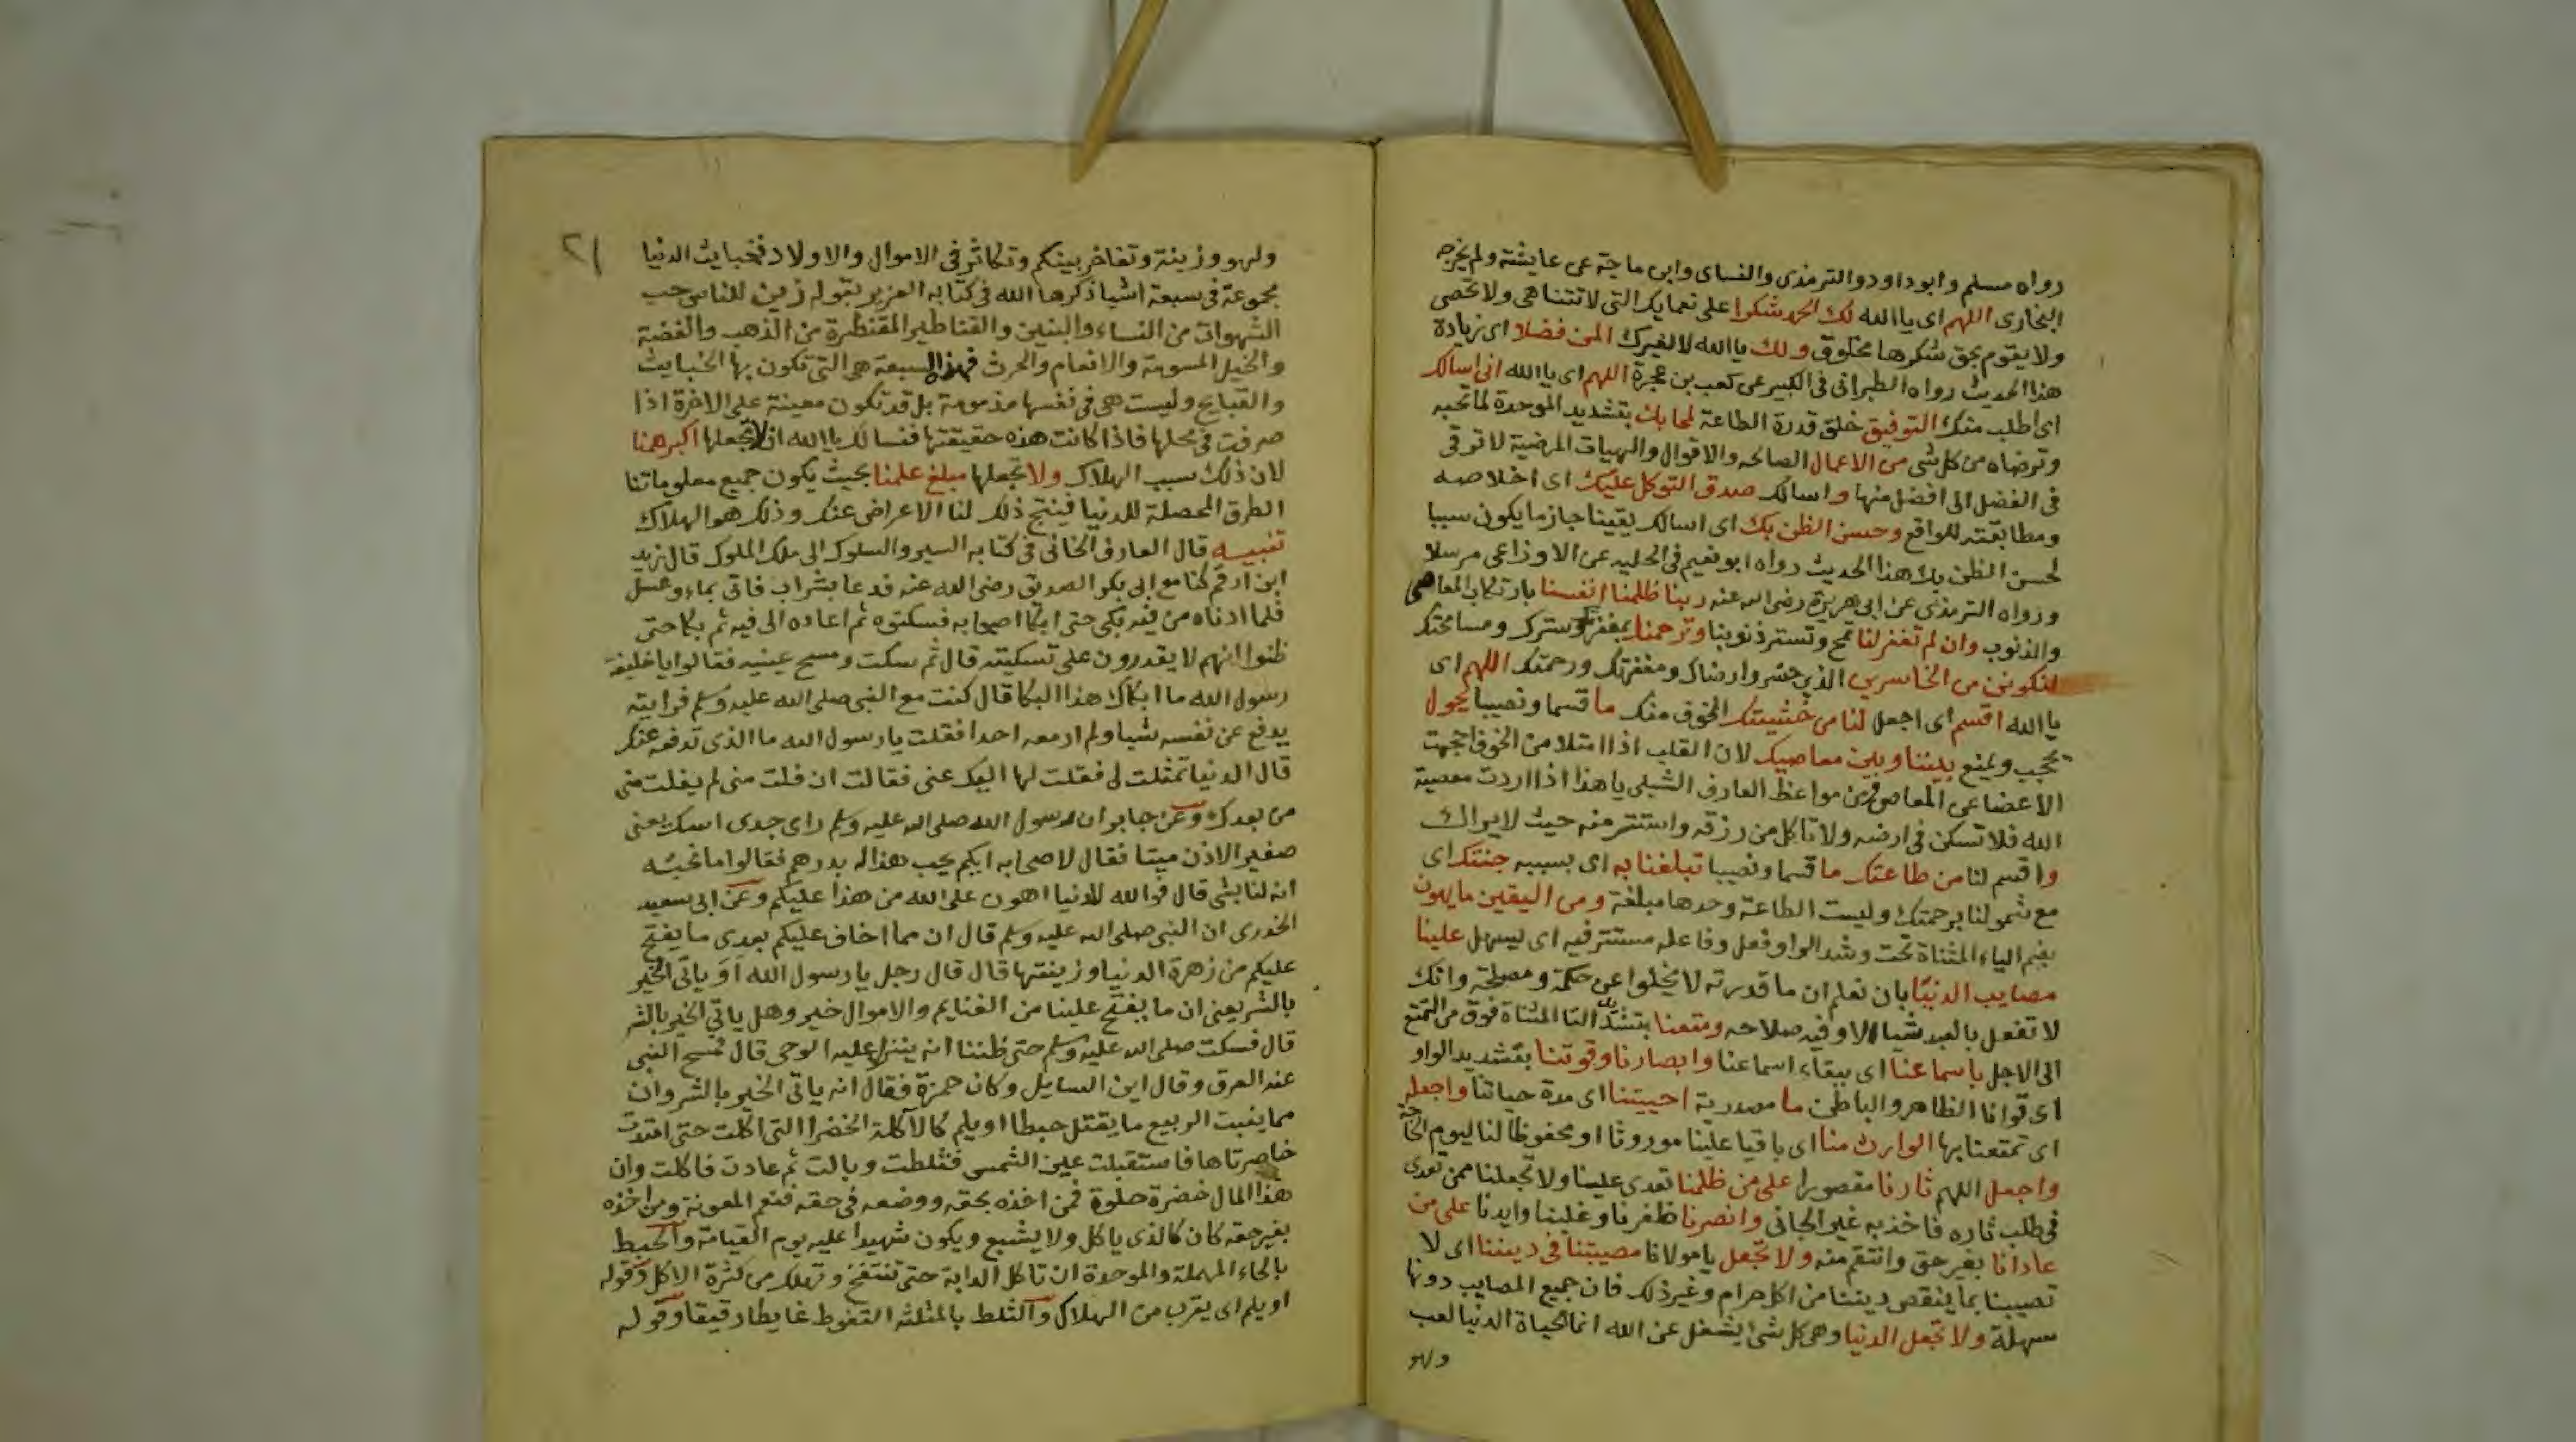 رواه مسلم وابو داود والترمذى والنساى وابن ماجة عن عايشة ولم يخرجه
البخارى اللهم اى يا الله لك الحمد شكرا على نعمايك التى لا تتناهى ولا تحصى
ولا يقوم بحق شكرها مخلوق ولك يا الله لا لغيرك المن فضلا اى زيادة
هذا الحديث رواه الطبرانى فى الكبير عن كعب بن عجرة اللهم اى يا الله انى اسالك
اى اطلب منك التوفيق خلق قدرة الطاعة لمحابك بتشديد الموحدة لما تحبه
وترضاه من كل شى من الاعمال الصالحه والاقوال والهيات المرضية لا ترقى
فى الفضل الى افضل منها واسالك صدق التوكل عليك اى اخلاصه
ومطابقته للواقع وحسن الظن بك اى اسالك يقينا جازما يكون سببا
لحسن الظن بك هذا الحديث رواه ابو نعيم فى الحليه عن الاوزاعى مرسلا
ورواه الترمذى عن ابى هريرة رضى الله عنه ربنا ظلمنا انفسنا بارتكاب المعاصى
والذنوب وان لم تغفر لنا تمح وتستر ذنوبنا وترحمنا بمغفرتك وسترك ومسامحتك
لنكونن من الخاسرين الذين خسروا رضاك ومغفرتك ورحمتك اللهم اى
يا الله اقسم اى اجعل لنا من خشيتك الخوف منك ما قسما ونصيبا يحول
يحجب ويمنع بيننا وبين معاصيك لان القلب اذا امتلا من الخوف احجمت
الاعضا عن المعاصى فمن مواعظ العارف الشبلى يا هذا اذا اردت معصية
الله فلا تسكن فى ارضه ولا تاكل من رزقه واستتر منه حيث لا يراك
واقسم لنا من طاعتك ما قسما ونصيبا تبلغنا به اى بسببه جنتك اى
مع شمولنا برحمتك وليست الطاعة وحدها مبلغة ومن اليقين ما يهون
بضم الياء المثناة تحت وشد الواو فعل وفاعله مستتر فيه اى يسهل علينا
مصايب الدنيا بان نعلم ان ما قدرته لا يخلوا عن حكمة ومصلحة وانك
لا تفعل بالعبد شيا الا وفيه صلاحه ومتعنا بتشديد التا المثناة فوق من التمتع
الى الاجل باسماعنا اى ببقاء اسماعنا وابصارنا وقوتنا بتشديد الواو
اى قوانا الظاهر والباطن ما مصدرية احييتنا اى مدة حياتنا واجعله
اى تمتعنا بها الوارث منا اى باقيا علينا موروثا او محفوظا لنا ليوم الحاجة
واجعل اللهم ثارنا مقصورا على من ظلمنا تعدى علينا ولا تجعلنا ممن تعدى
فى طلب ثاره فاخذ به غير الجانى وانصرنا ظفرنا وغلبنا وايدنا على من
عادانا بغير حق وانتقم منه ولا تجعل يا مولانا مصيبتنا فى ديننا اى لا
تصيبنا بما ينقص ديننا من اكل حرام وغير ذلك فان جميع المصايب دونها
سهلة ولا تجعل الدنيا وهى كل شئ يشغل عن الله انما الحياة الدنيا لعب
ولهو
٢١
ولهو وزينة وتفاخر بينكم وتكاثر فى الاموال والاولاد فخبايث الدنيا
مجموعة فى سبعة اشيا ذكرها الله فى كتابه العزيز بقوله زين للناس حب
الشهوات من النساء والبنين والقناطير المقنطرة من الذهب والفضة
والخيل المسومة والانعام والحرث فهذه السبعة هى التى تكون بها الخبايث
والقبايح وليست هى فى نفسها مذمومة بل قد تكون معينة على الاخرة اذا
صرفت فى محلها فاذا كانت هذه حقيقتها فنسالك يا الله ان لا تجعلها اكبر همنا
لان ذلك سبب الهلاك ولا تجعلها مبلغ علمنا بحيث يكون جميع معلوماتنا
الطرق المحصلة للدنيا فينتج ذلك لنا الاعراض عنك وذلك هو الهلاك
تنبيه قال العارف الخانى فى كتابه السير والسلوك الى ملك الملوك قال زيد
ابن ارقم كنا مع ابى بكر الصديق رضى الله عنه فدعا بشراب فاتى بماء وعسل
فلما ادناه من فيه بكى حتى ابكا اصحابه فسكتوه ثم اعاده الى فيه ثم بكا حتى
ظنوا انهم لا يقدرون على تسكيته قال ثم سكت ومسح عينيه فقالوا يا خليفة
رسول الله ما ابكاك هذا البكا قال كنت مع النبى صلى الله عليه وسلم فرايته
يدفع عن نفسه شيا ولم ار معه احدا فقلت يا رسول الله ما الذى تدفعه عنك
قال الدنيا تمثلت لى فقلت لها اليك عنى فقالت ان فلت منى لم يفلت منى
من بعدك وعن جابر ان رسول الله صلى الله عليه وسلم راى جدى اسك يعنى
صغير الاذن ميتا فقال لاصحابه ايكم يحب هذا له بدرهم فقالوا ما نحبه
انه لنا بشى قال فوالله للدنيا اهون على الله من هذا عليكم وعن ابى سعيد
الخدرى ان النبى صلى الله عليه وسلم قال ان مما اخاف عليكم بعدى ما يفتح
عليكم من زهرة الدنيا وزينتها قال قال رجل يا رسول الله اَوَ ياتى الخير
بالشر يعنى ان ما يفتح علينا من الغنايم والاموال خير وهل ياتى الخير بالشر
قال فسكت صلى الله عليه وسلم حتى ظننا انه ينزل عليه الوحى قال فمسح النبى
عنه العرق وقال اين السايل وكان حمزة فقال انه ياتى الخير بالشر وان
مما ينبت الربيع ما يقتل حبطا او يلم كالاكلة الخضرا التى اكلت حتى امتدت
خاصرتاها فاستقبلت عين الشمس فثلطت وبالت ثم عادت فاكلت وان
هذا المال خضرة حلوة فمن اخذه بحقه ووضعه فى حقه فنعم المعونة ومن اخذه
بغير حقه كان كالذى ياكل ولا يشبع ويكون شهيدا عليه يوم القيامة والحبط
بالحاء المهملة والموحدة ان تاكل الدابة حتى تنتفخ وتهلك من كثرة الاكل وقوله
او يلم اى يقرب من الهلاك والثلط بالمثلثه التغوط غايطا رقيقا وقوله